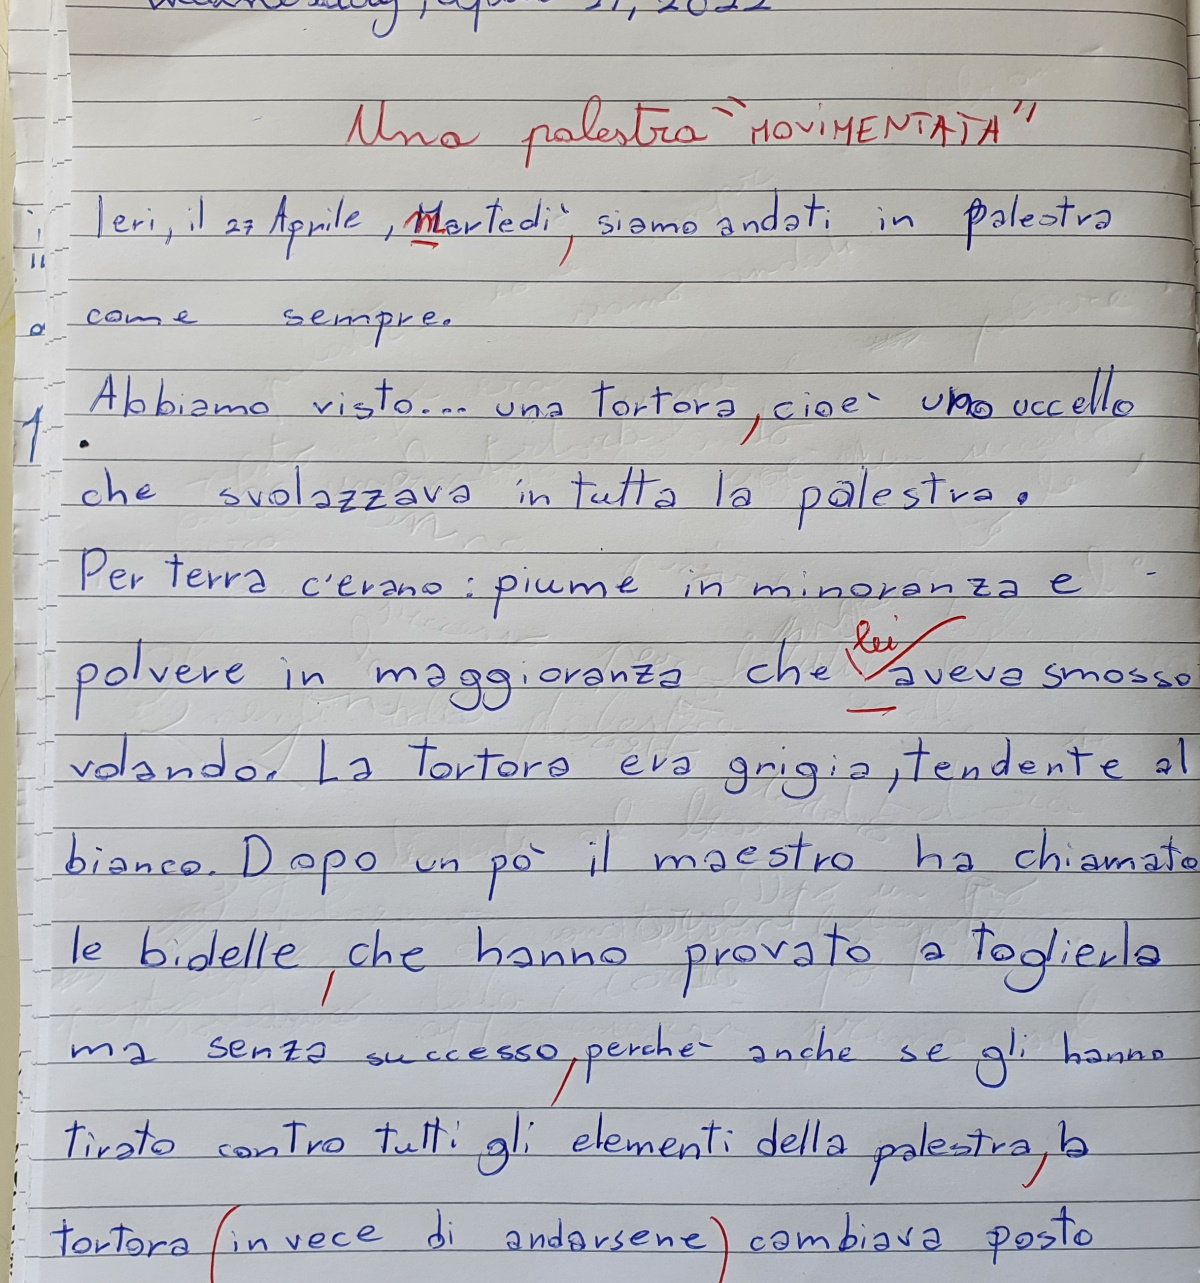 Wednesday, April 27, 2022
Una palestra "MOVIMENTATA"
Ieri, il 27 Aprile, Martedì, siamo andati in palestra
come sempre.
Abbiamo visto... una tortora, cioè uno uccello
che svolazzava in tutta la palestra.
Per terra c'erano: piume in minoranza e
polvere in maggioranza che lei aveva smosso
volando. La tortora era grigia, tendente al
bianco. Dopo un pò il maestro ha chiamato
le bidelle, che hanno provato a toglierla
ma senza successo, perchè anche se gli hanno
tirato contro tutti gli elementi della palestra, la
tortora (invece di andarsene) cambiava posto